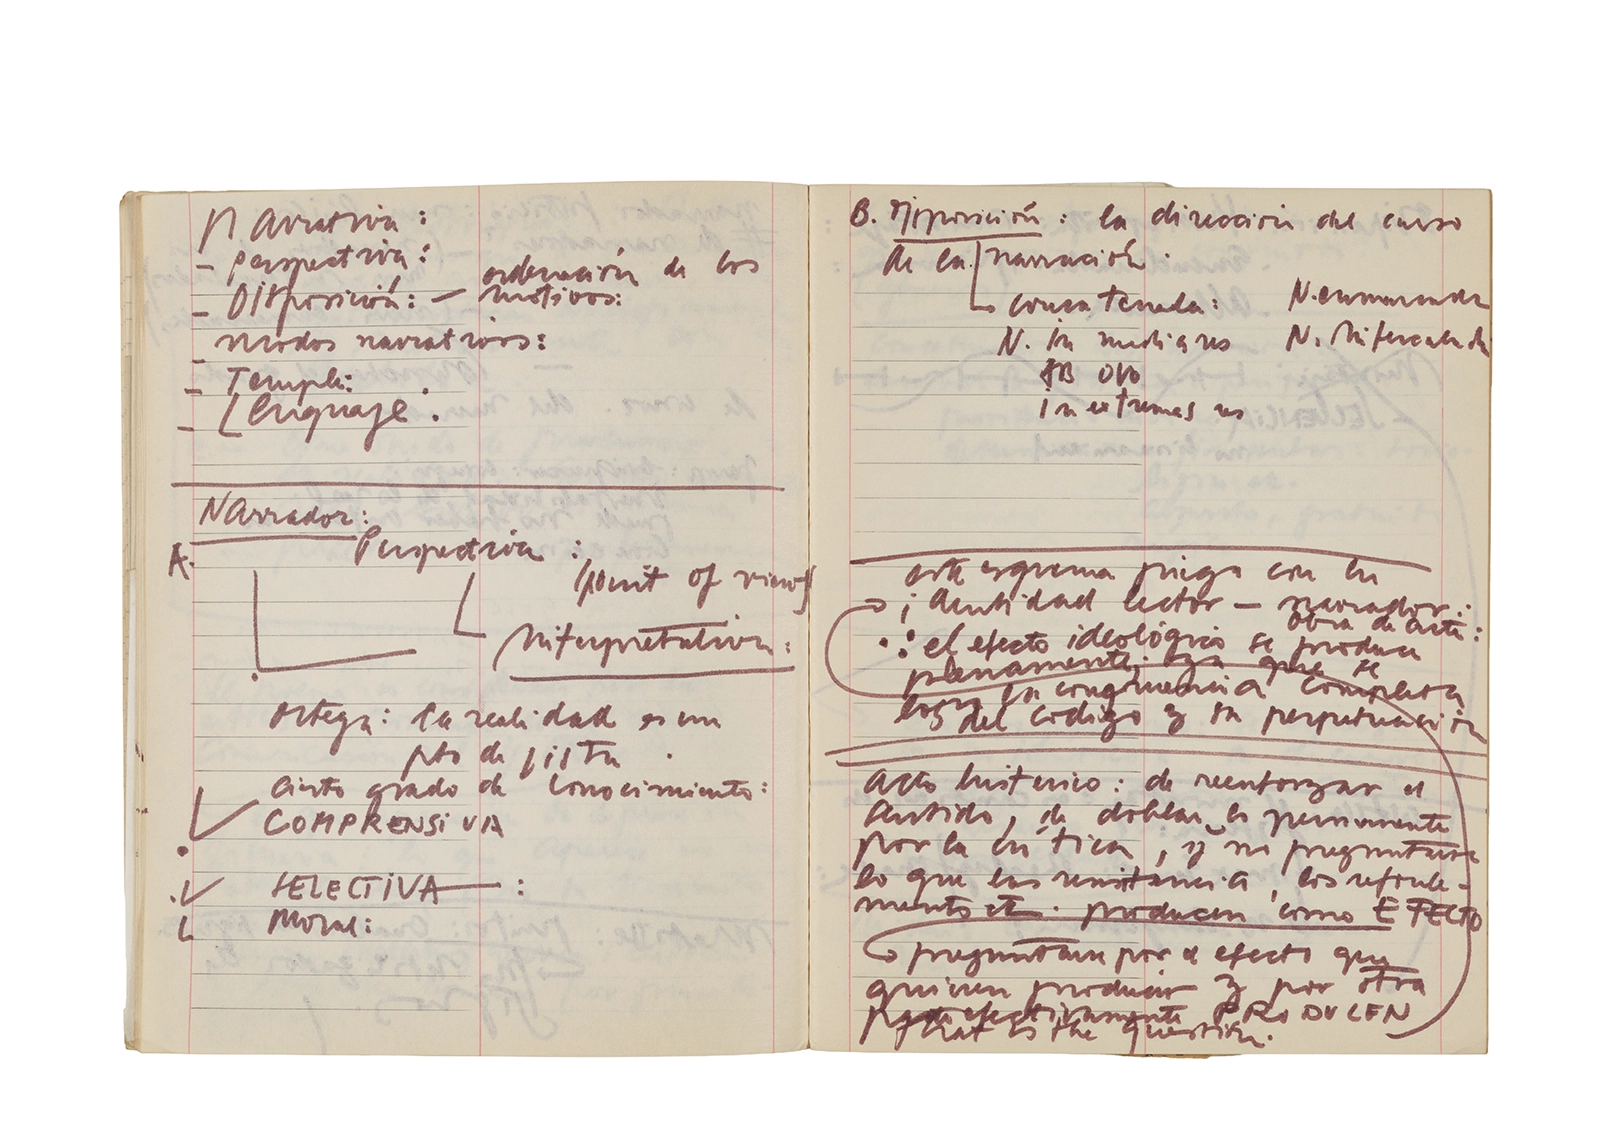 Narrativa:
- perspectiva:
- Disposición: - ordenación de los motivos:
- modos narrativos:
- Temple:
- Lenguaje:
Narrador:
A. Perspectiva:
(point of view)
interpretativa:
Ortega: la realidad es un
pto de vista
cierto grado de conocimiento:
COMPRENSIVA
SELECTIVA:
Moral:
B. Disposición: la dirección del curso
de la narración.
concatenada: N. enmarcada
N. in medias res N. intercalada
AB OVO
in extremas res
este esquema juega con la
identidad lector - narrador:
obra de arte:
: el efecto ideológico se produce
plenamente, que se
la congruencia completa
del código y su perpetuación
Acto histérico: de reenforzar el
sentido, de doblar lo
por la crítica, y no preguntarse
lo que las resistencia, los
etc. producen como EFECTO
preguntarse por el efecto que
quieren producir y por otra
efectivamente PRODUCEN
that is the question.